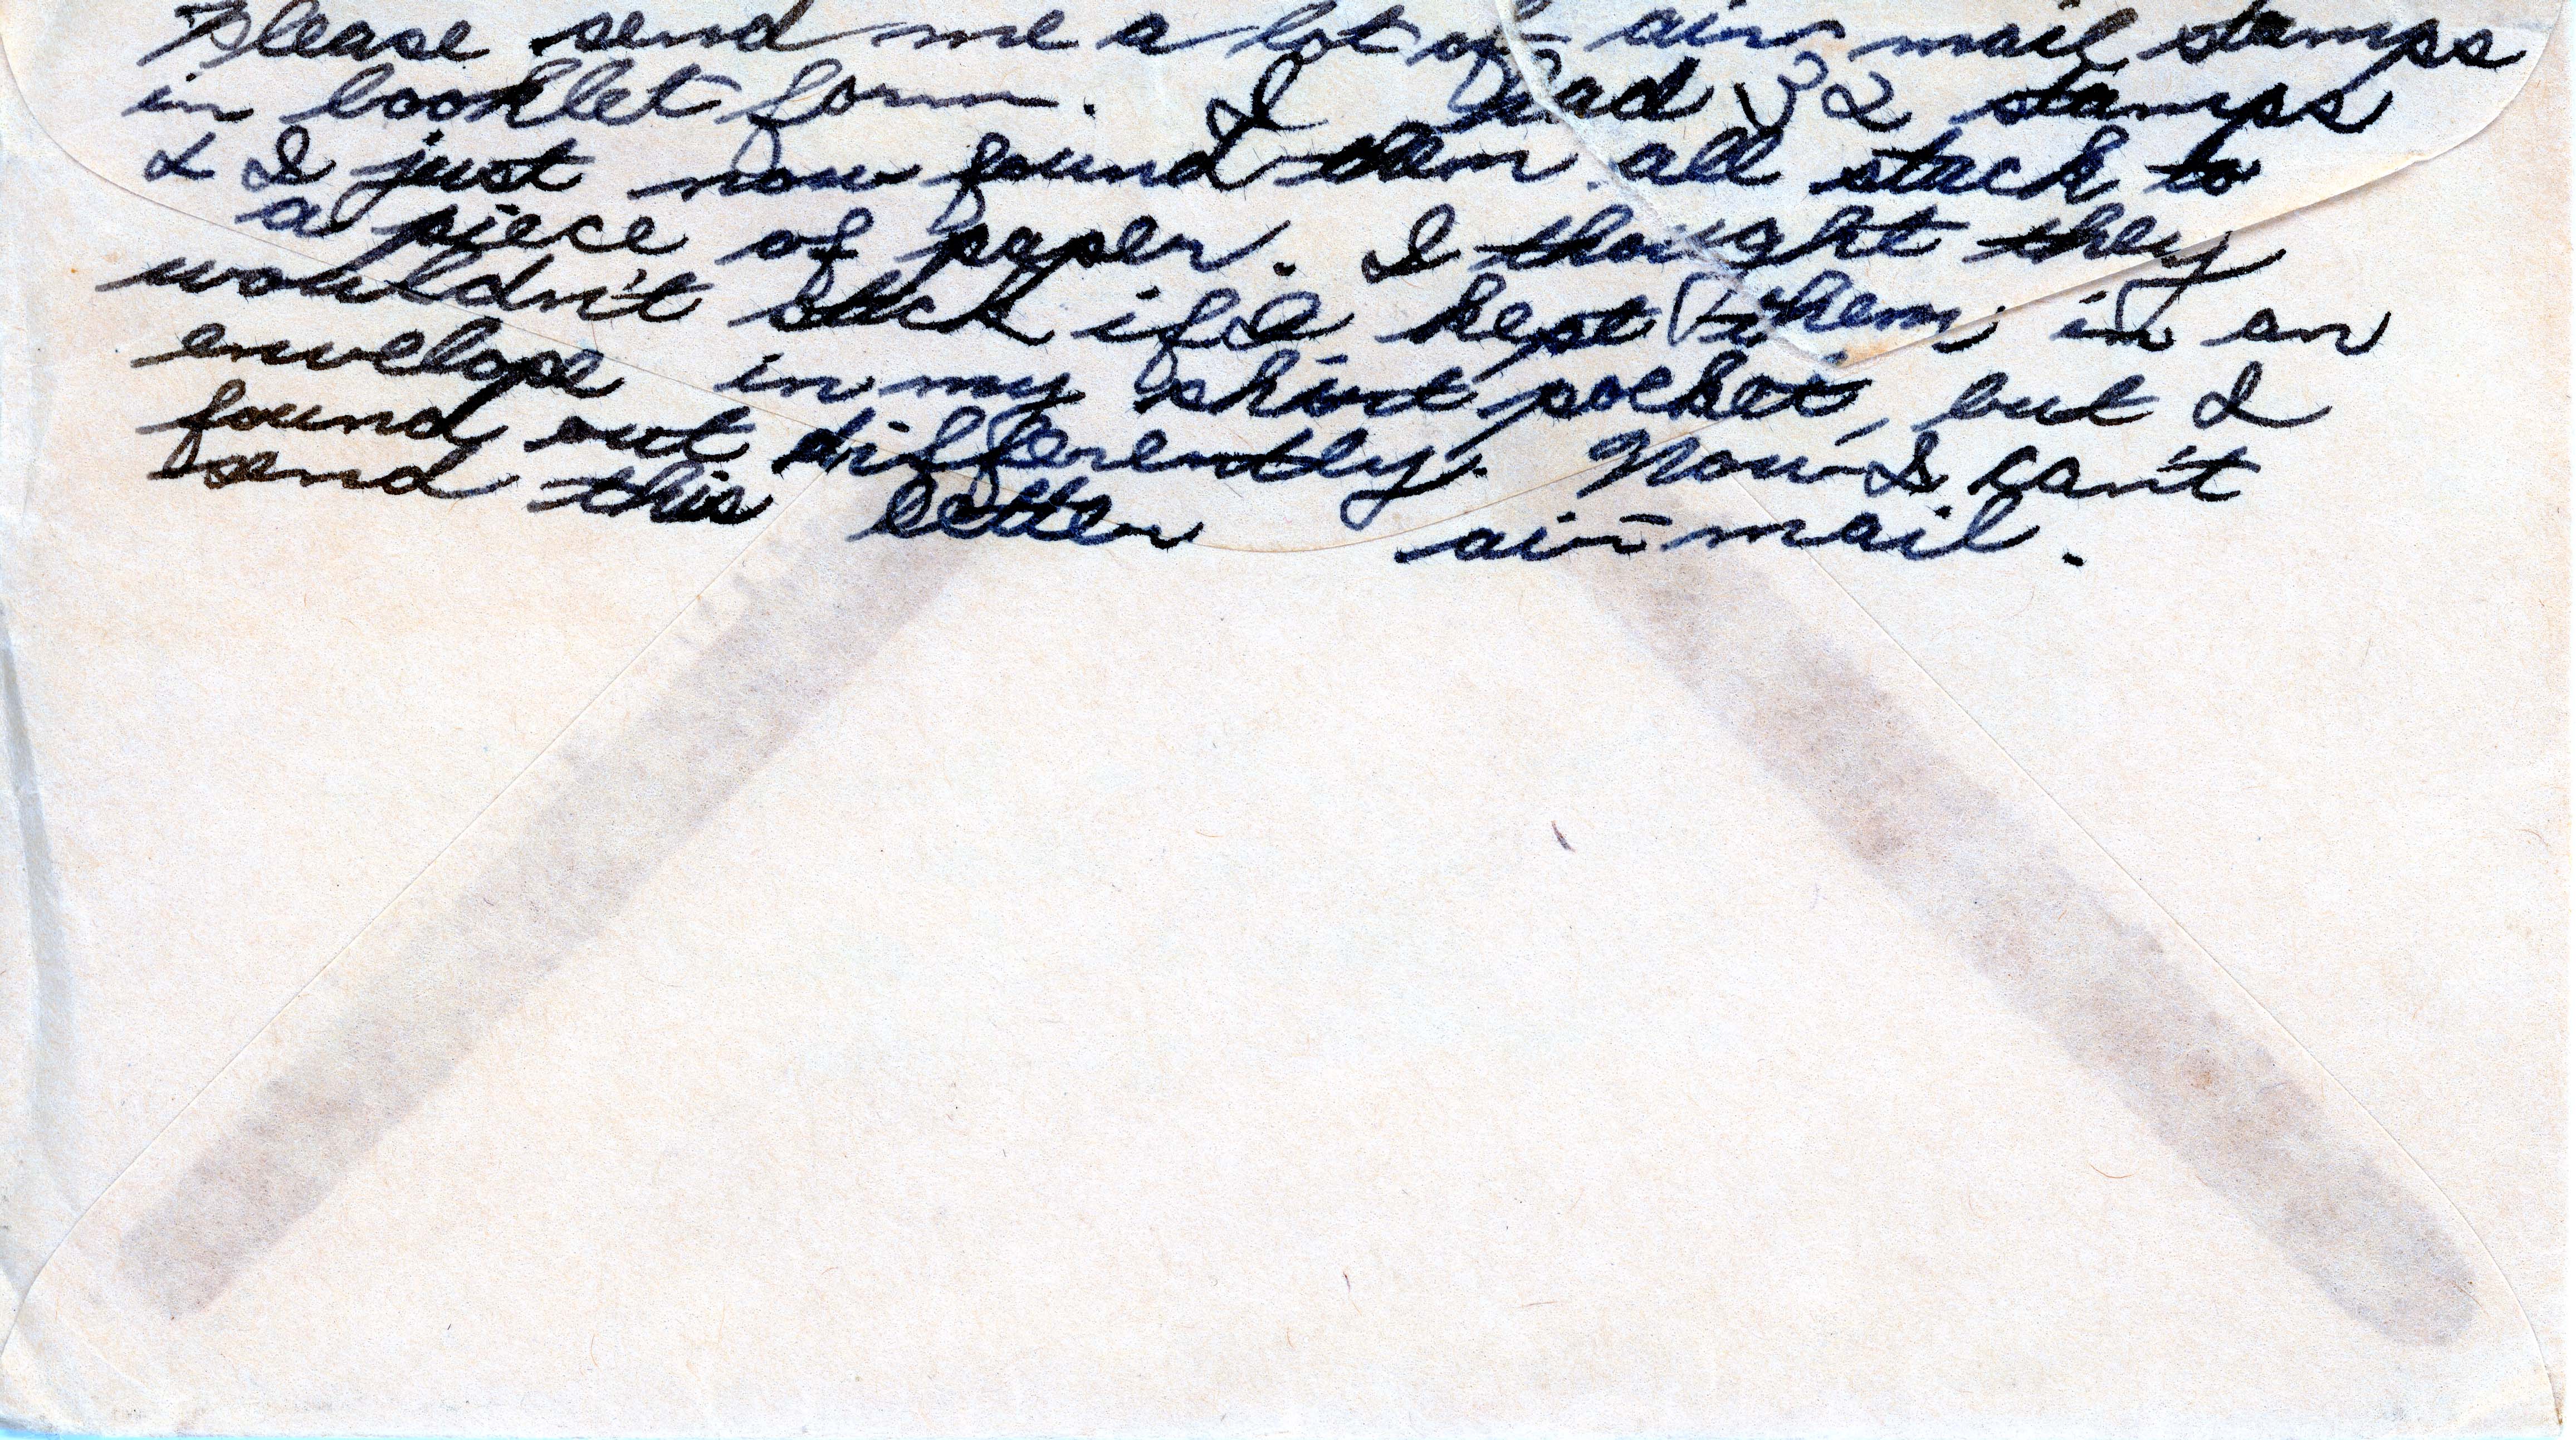 Please send me a lot of air mail stamps
in booklet form. I had 32 stamps
& I just now found them all stuck to
a piece of paper. I thought they
wouldn't stick if I kept them in an
envelope in my shirt pocket, but I
found out differently. Now I can't
send this letter air-mail.